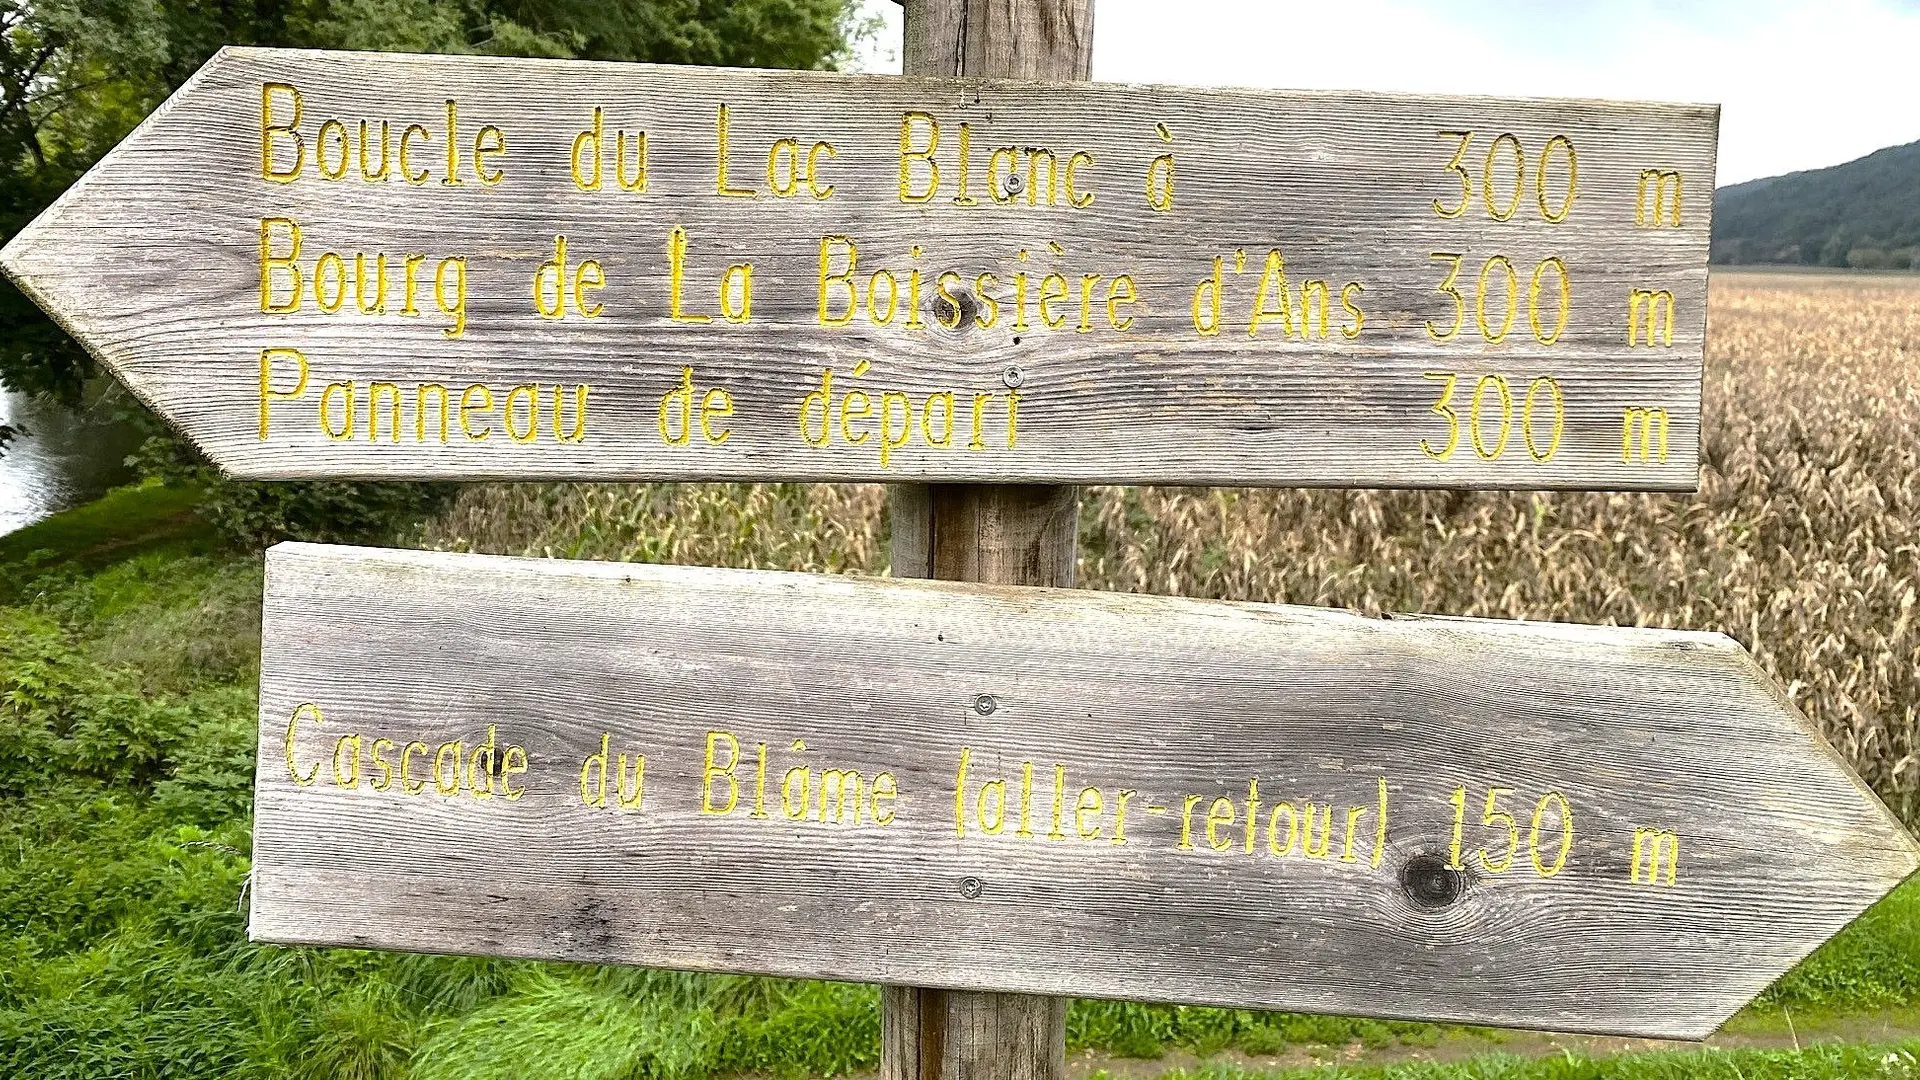 Boucle du Lac Blanc à 300 m
Bourg de La Boissière d'Ans 300 m
Panneau de départ 300 m
Cascade du Blâme (aller-retour) 150 m